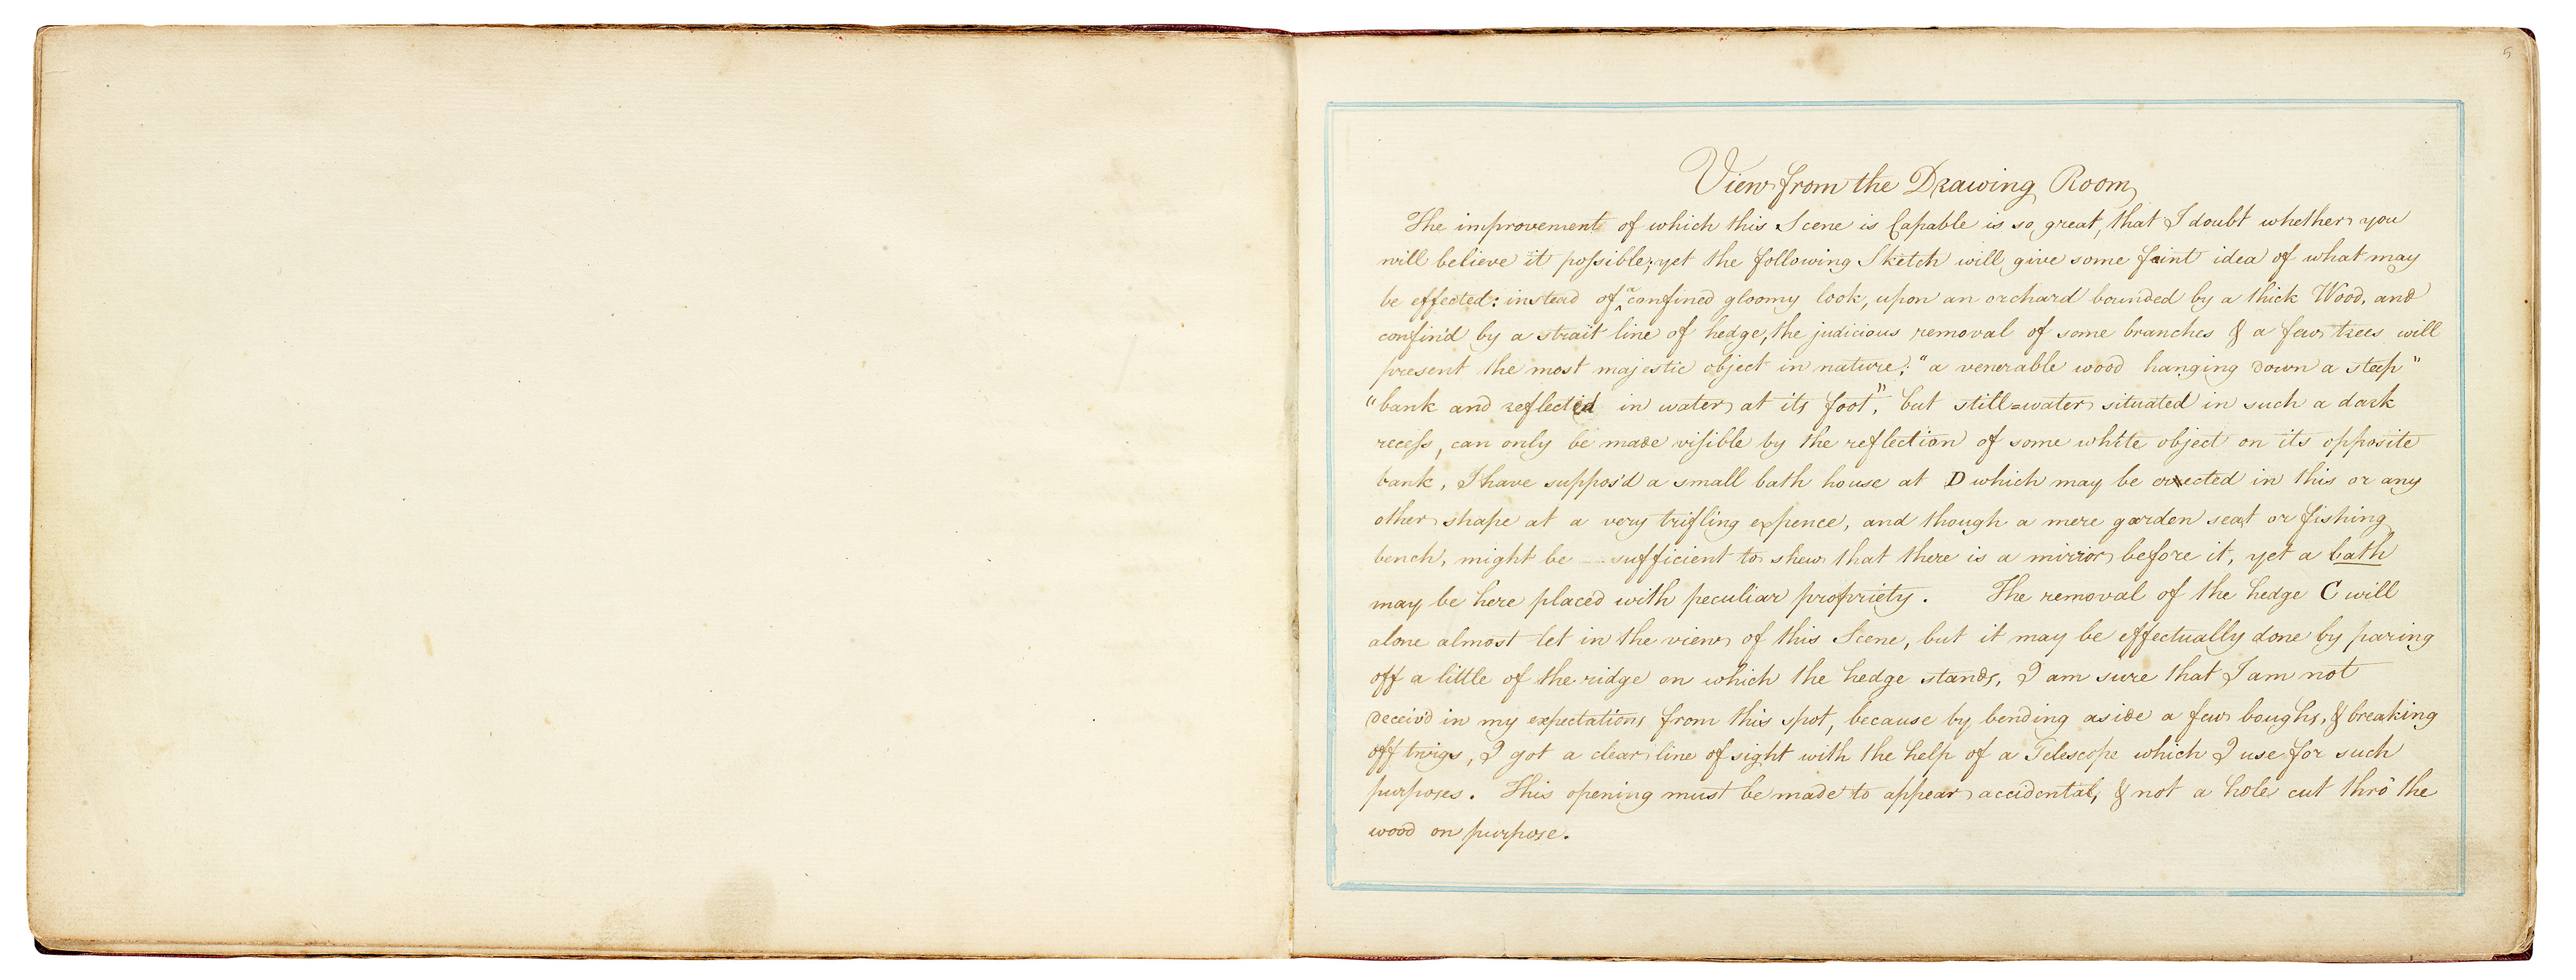 5
View from the Drawing Room
The improvement of which this Scene is Capable is so great, that I doubt whether you
will believe it poſsible; yet the following Sketch will give some faint idea of what may
be effected: instead of a confined gloomy look, upon an orchard bounded by a thick Wood, and
confin'd by a strait line of hedge, the judicious removal of some branches & a few trees will
present the most majestic object in nature; "a venerable wood hanging down a steep"
"bank and reflected in water at its foot", but still=water situated in such a dark
receſs, can only be made viſible by the reflection of some white object on its opposite
bank, I have suppos'd a small bath house at D which may be erected in this or any
other shape at a very trifling expence, and though a mere garden seat or fishing
bench, might be sufficient to shew that there is a mirror before it, yet a bath
may be here placed with peculiar propriety. The removal of the hedge C will
alone almost let in the view of this Scene, but it may be effectually done by paring
off a little of the ridge on which the hedge stands, I am sure that I am not
deceiv'd in my expectations from this spot, because by bending aside a few boughs, & breaking
off twigs, I got a clear line of sight with the help of a Telescope which I use for such
purposes. This opening must be made to appear accidental, & not a hole cut thro' the
wood on purpose.